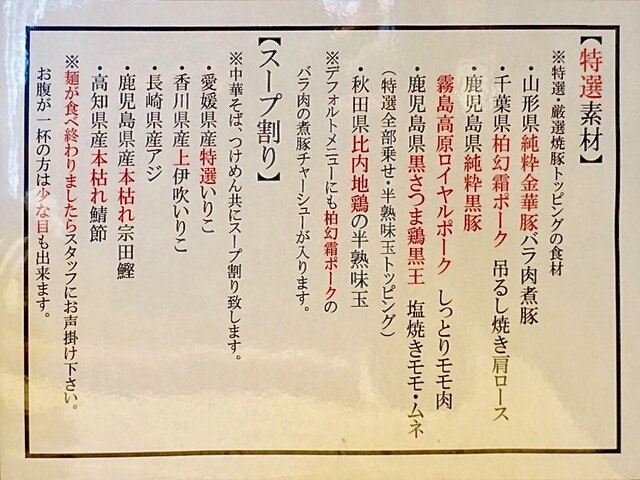 【特選素材】
※特選・厳選焼豚トッピングの食材
・山形県純粋金華豚バラ肉煮豚
・千葉県柏幻霜ポーク 吊るし焼き肩ロース
・鹿児島県純粋黒豚
霧島高原ロイヤルポーク しっとりモモ肉
・鹿児島県黒さつま鶏黒王 塩焼きモモ・ムネ
(特選全部乗せ・半熟味玉トッピング)
・秋田県比内地鶏の半熟味玉
※デフォルトメニューにも柏幻霜ポークの
バラ肉の煮豚チャーシューが入ります。
【スープ割り】
※中華そば、つけめん共にスープ割り致します。
・愛媛県産特選いりこ
・香川県産上伊吹いりこ
・長崎県産アジ
・鹿児島県産本枯れ宗田鰹
・高知県産本枯れ鯖節
※麺が食べ終わりましたらスタッフにお声掛け下さい。
お腹が一杯の方は少な目も出来ます。